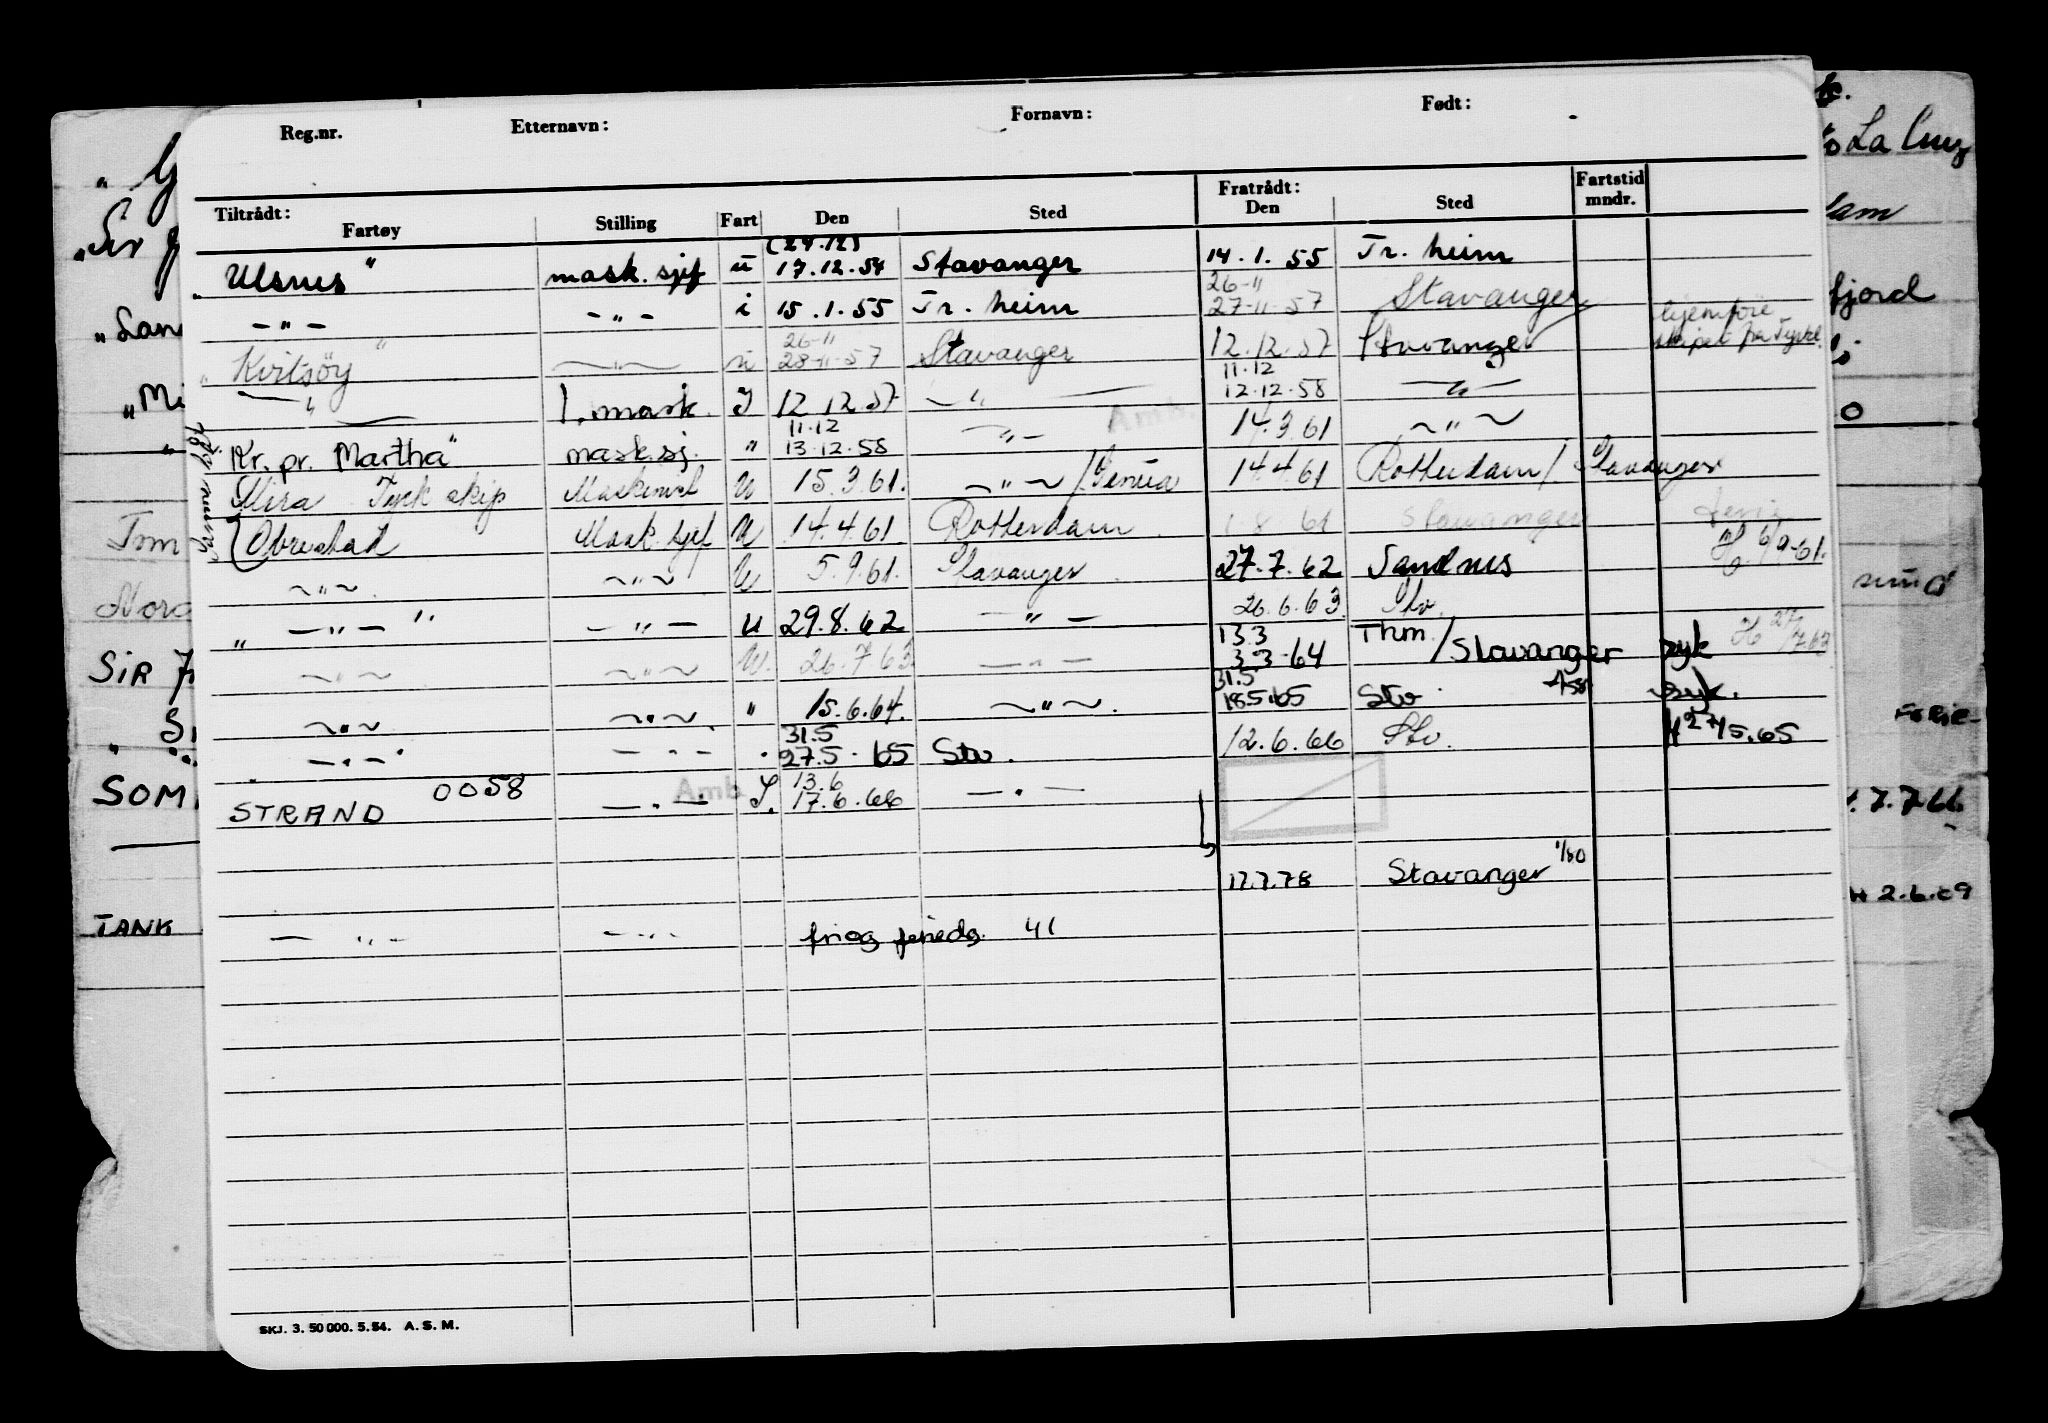 Reg.nr. Etternavn: Fornavn: Født:
Tiltrådt: Fratrådt: Fartstid
Fartøy Stilling Fart Den Sted Den Sted mndr.
(29.12)
"Ulsnes" mask. sjef u 17.12.54 Stavanger 14.1.55 Tr. heim
26-11
— " — — " — i 15.1.55 Tr. heim 27-11-57 Stavanger hjemføre
26-11
"Kvitsöy" — " — u 28-11-57 Stavanger 12.12.57 Stavanger skipet fra
11.12
— " — 1. mask. I 12.12.57 — " — 12.12.58 — " —
11.12
Kr. pr. Martha" mask.sj. " 13.12.58 — " — 14.3.61 ~ " ~
Mira Tysk skip Maskinist U 15.3.61. ~ " ~ / Genua 14.4.61 Rotterdam / Stavanger
Obrestad Mask. sjef U 14.4.61 Rotterdam 1.8.61 Stavanger ferie
~ " ~ ~ " ~ U 5.9.61. Stavanger 27.7.62 Sandnes H 6/9-61.
" — " — " — " — u 29.8.62 — " — 26.6.63. Stv.
13.3
~ " ~ ~ " ~ U. 26.7.63 — " — 3.3.64 Thm. / Stavanger syk H 27/7.63
31.5
~ " ~ ~ " ~ " 15.6.64. ~ " ~ 18.5.65 Stv. syk.
31.5
" — " — " — " — " 27.5.65 Stv. 12.6.66 Stv. H 27/5.65
13.6
STRAND 0058 — " — 17.6.66 — " —
Amb.
Amb.
17.7.78 Stavanger 1/80
— " — — " — 41
SKJ. 3. 50 000. 5. 54. A. S. M.
La Cruz
fjord
Tom
SIR
SOM
TANK
FERIE-
7.7.66
H 2.6.69